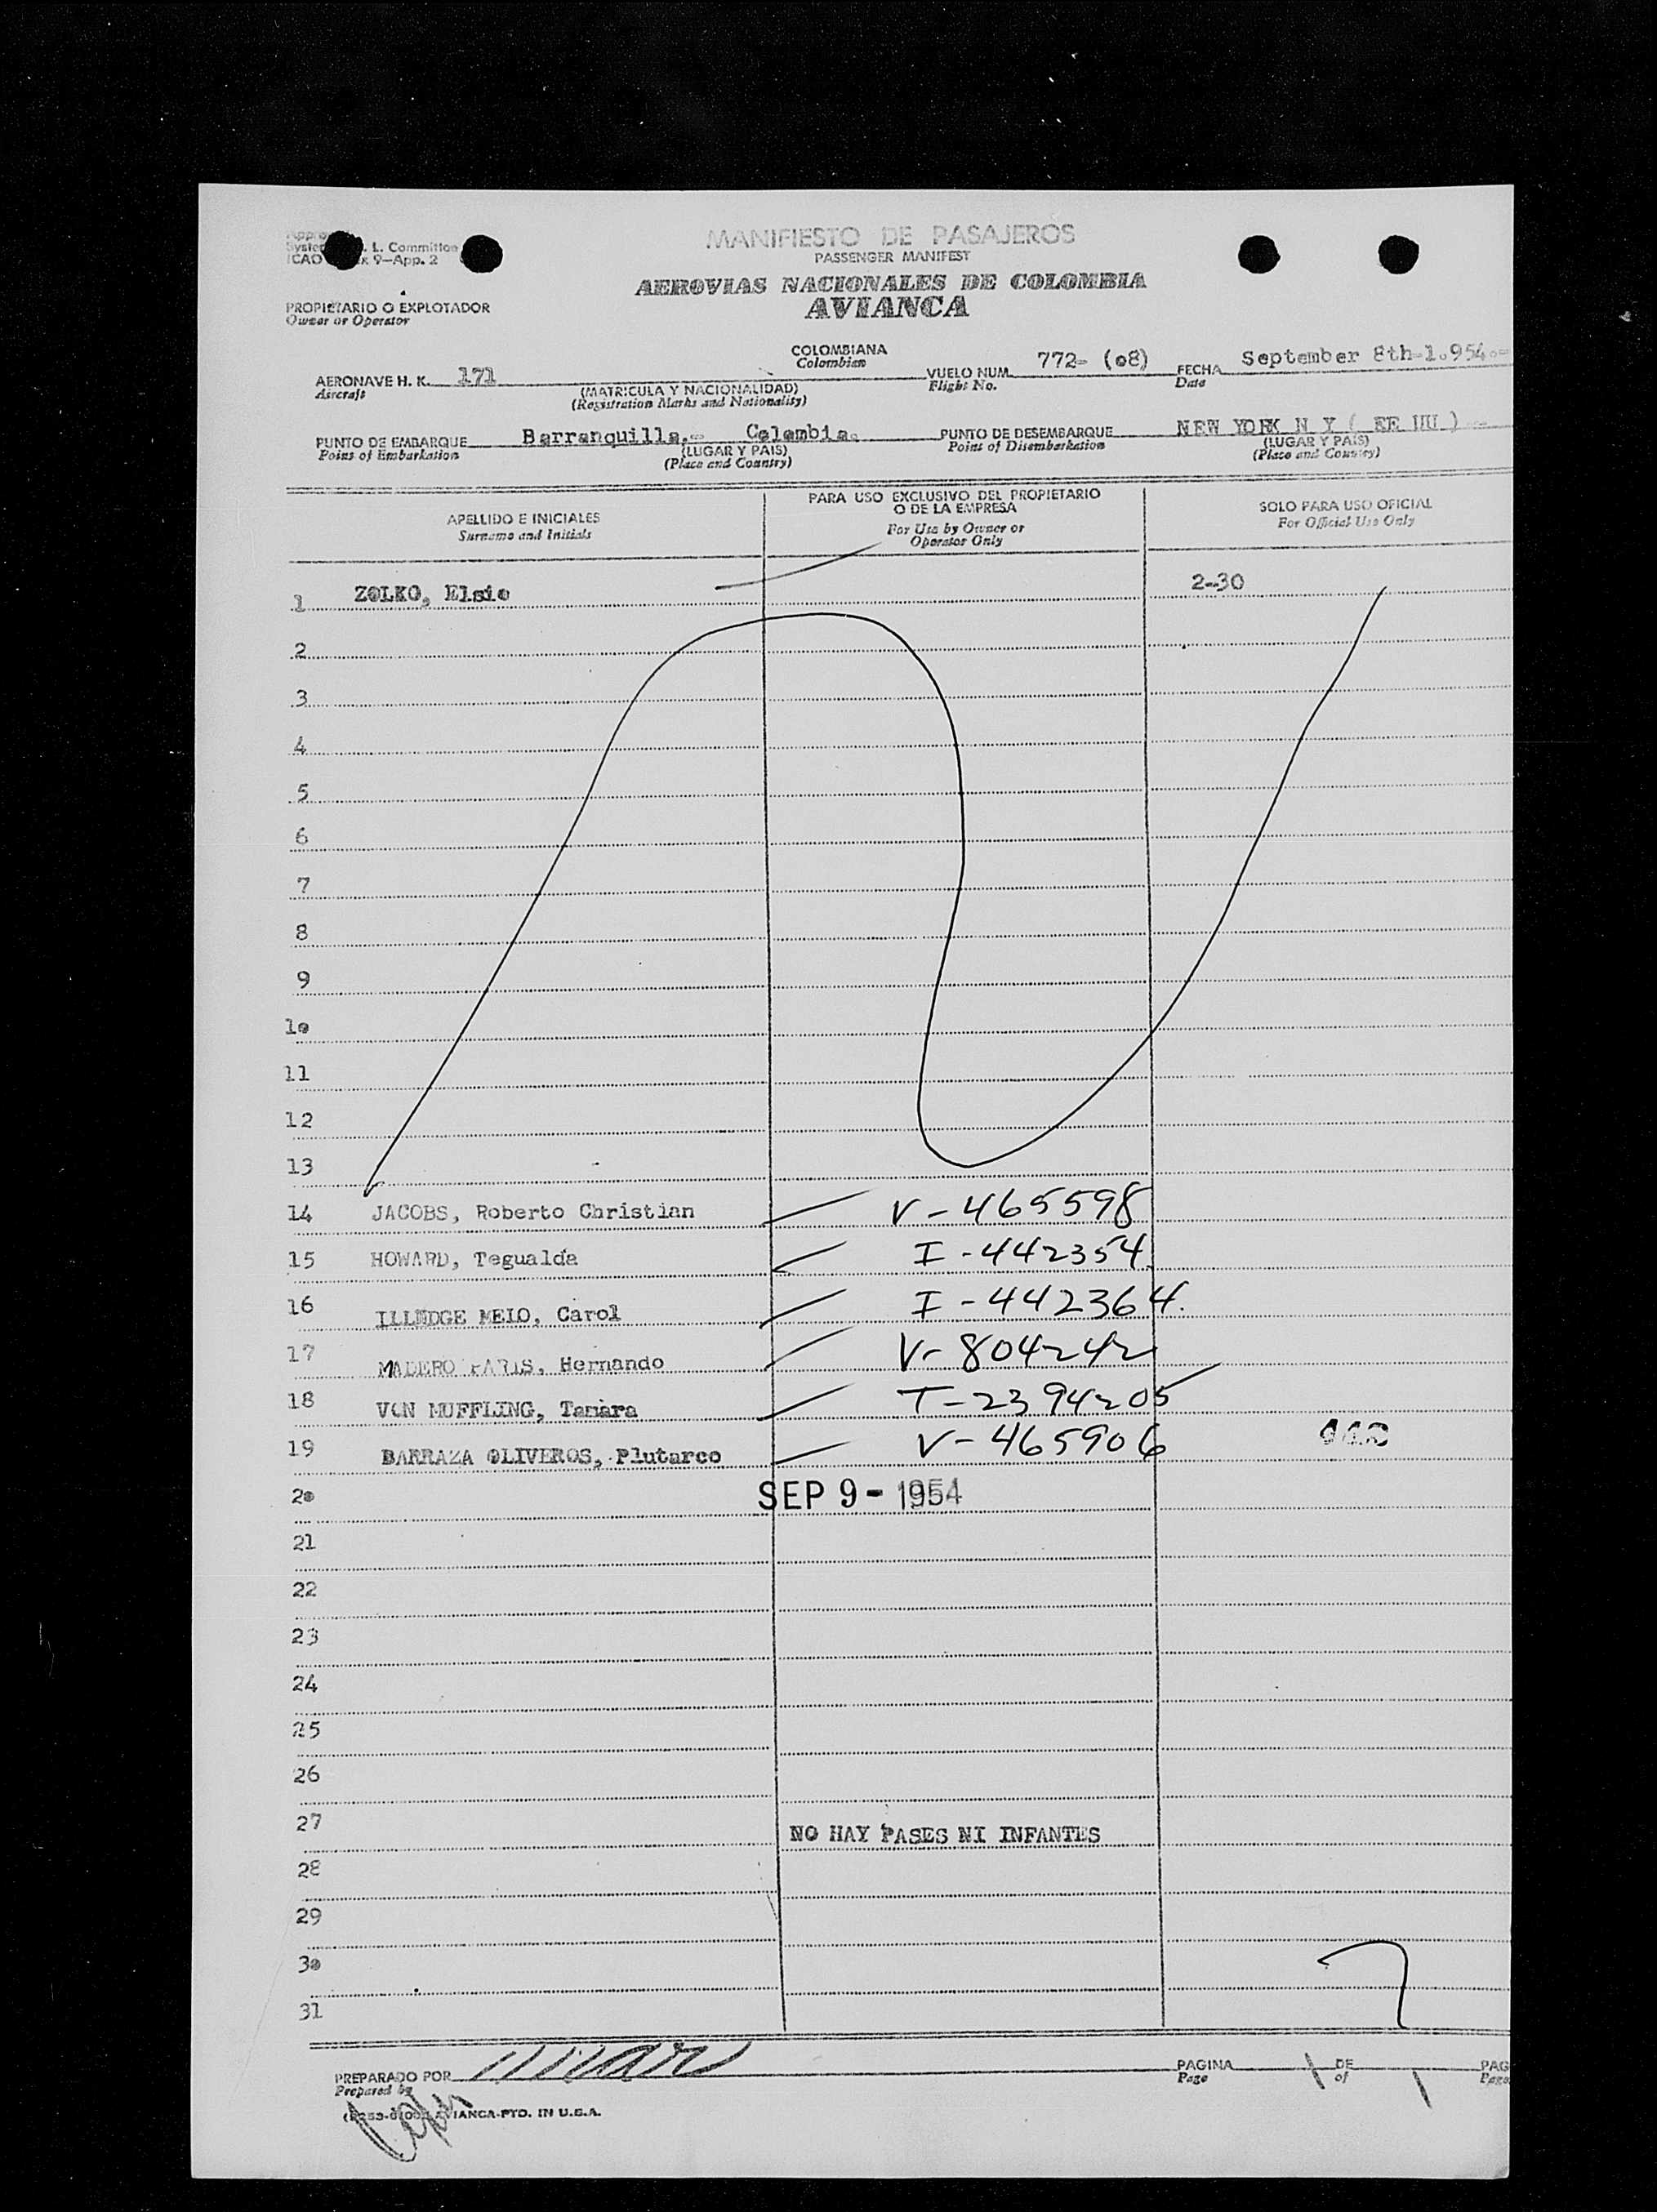 L. Committee
ICAO 9—App. 2
MANIFIESTO DE PASAJEROS
PASSENGER MANIFEST
AEROVIAS NACIONALES DE COLOMBIA
AVIANCA
PROPIETARIO O EXPLOTADOR
Owner or Operator
COLOMBIANA
Colombian
AERONAVE H. K. 171
Aircraft
(MATRICULA Y NACIONALIDAD)
(Registration Marks and Nationality)
VUELO NUM. 772- (08)
Flight No.
FECHA September 8th-1.954.-
Date
PUNTO DE EMBARQUE Barranquilla.- Colombia.
Point of Embarkation
(LUGAR Y PAIS)
(Place and Country)
PUNTO DE DESEMBARQUE NEW YORK N Y ( EE UU ) -
Point of Disembarkation
(LUGAR Y PAIS)
(Place and Country)
APELLIDO E INICIALES
Surname and Initials
PARA USO EXCLUSIVO DEL PROPIETARIO
O DE LA EMPRESA
For Use by Owner or
Operator Only
SOLO PARA USO OFICIAL
For Official Use Only
1 ZOLKO, Elsie 2-30
2
3
4
5
6
7
8
9
10
11
12
13
14 JACOBS, Roberto Christian V-465598
15 HOWARD, Tegualda I-442354
16 ILLEDGE MELO, Carol I-442364.
17 MADERO PARIS, Hernando V-804242
18 VON MUFFLING, Tamara T-2394205
19 BARRAZA OLIVEROS, Plutarco V-465906
20 SEP 9 - 1954
21
22
23
24
25
26
27 NO HAY PASES NI INFANTES
28
29
30
31
PREPARADO POR
Prepared by
PAGINA 1 DE 1 PAG
Page of Page
AVIANCA-PTD. IN U.S.A.